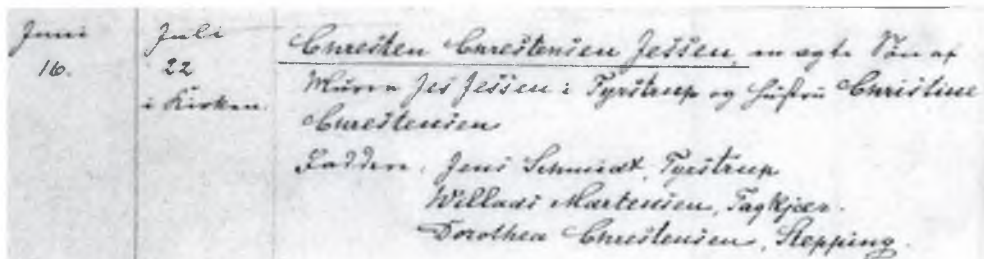 Juni
16.
Juli
22
i Kirken.
Chresten Chrestensen Jessen, en ægte Søn af
Murer Jes Jessen i Tyrstrup og Hustru Christine
Chrestensen
Faddere: Jens Schmidt, Tyrstrup
Willads Martensen, Tagkjær.
Dorothea Chrestensen, Stepping.